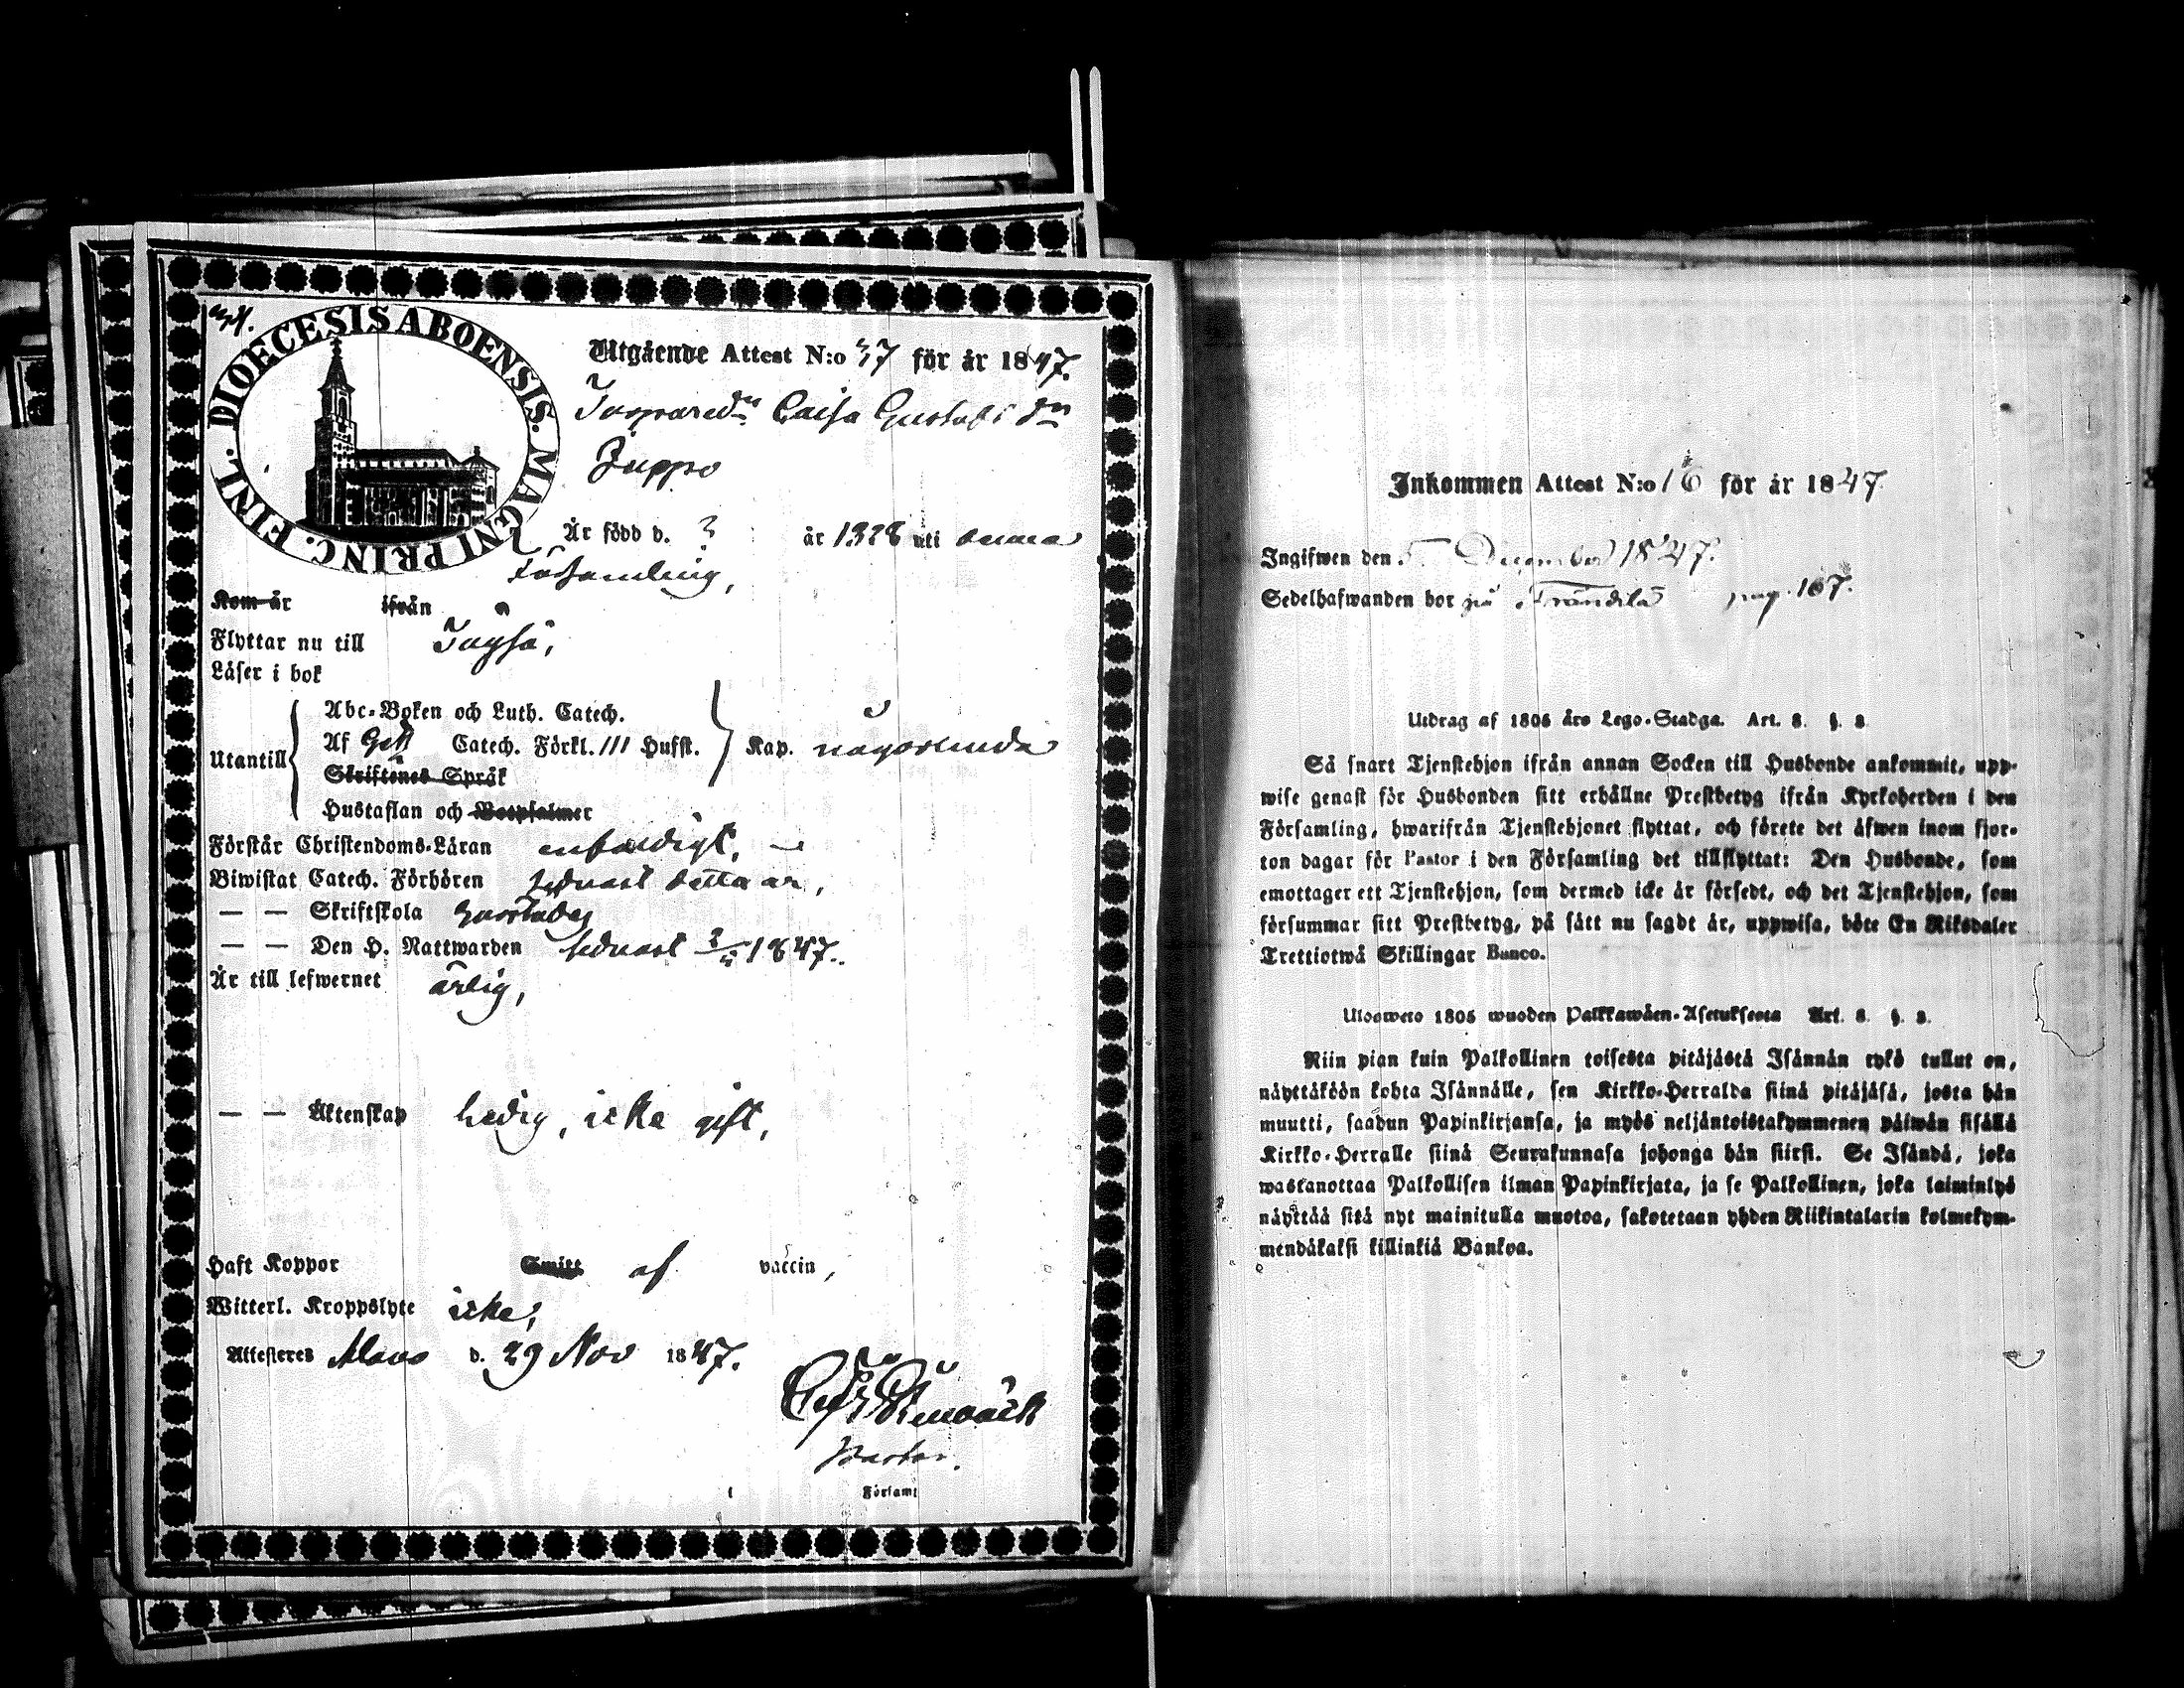 DIOECESIS ABOENSIS. MAGNI PRINC. FINL.
Utgående Attest N:o 37 för år 1847.
Caisa Gustafsdr
Juppo
År född d. ? år 1828 uti denna
Församling,
Kom år ifrån
Flyttar nu till
Läser i bok
Abc-Boken och Luth. Catech.
Utantill Af Catech. Förkl. III Hufst. Kap. någorlunda
Skriftenes Språk
Hustaflan och Botpsalmer
Förstår Christendoms-Läran enfaldigt,
Biwistat Catech. Förhören sednast detta år,
— — Skriftskola
— — Den H. Nattwarden sednast 1847.
Är till lefwernet ärlig,
— — Äktenskap ledig, icke gift,
Haft Koppor Smitt af vaccin,
Witterl. Kroppslyte icke,
Attesteres Alavo d. 29 Nov 1847.
Pastor.
Församl
Inkommen Attest N:o 16 för år 1847
Ingifwen den 5 December 1847.
Sedelhafwanden bor på pag. 167.
Utdrag af 1805 års Lego-Stadga. Art. 8. §. 3
Så snart Tjenstehjon ifrån annan Socken till Husbonde ankommit, upp-
wise genast för Husbonden sitt erhållne Prestbetyg ifrån Kyrkoherden i den
Församling, hwarifrån Tjenstehjonet flyttat, och förete det äfwen inom fjor-
ton dagar för Pastor i den Församling det tillflyttat: Den Husbonde, som
emottager ett Tjenstehjon, som dermed icke är försedt, och det Tjenstehjon, som
försummar sitt Prestbetyg, på sätt nu sagdt är, uppwisa, böte En Riksdaler
Trettiotwå Skillingar Banco.
Ulosweto 1805 wuoden Palkkawäen-Asetuksesta Art. 8. §. 3.
Niin pian kuin Palkollinen toisesta pitäjästä Isännän tykö tullut on,
näyttäköön kohta Isännälle, sen Kirkko-Herralda siinä pitäjäsä, josta hän
muutti, saadun Papinkirjansa, ja myös neljäntoistakymmenen päiwän sisällä
Kirkko-Herralle siinä Seurakunnasa johonga hän siirsi. Se Isändä, joka
wastanottaa Palkollisen ilman Papinkirjata, ja se Palkollinen, joka laiminlyö
näyttää sitä nyt mainitulla muotoa, sakotetaan yhden Riikintalarin kolmekym-
mendäkaksi killinkiä Bankoa.